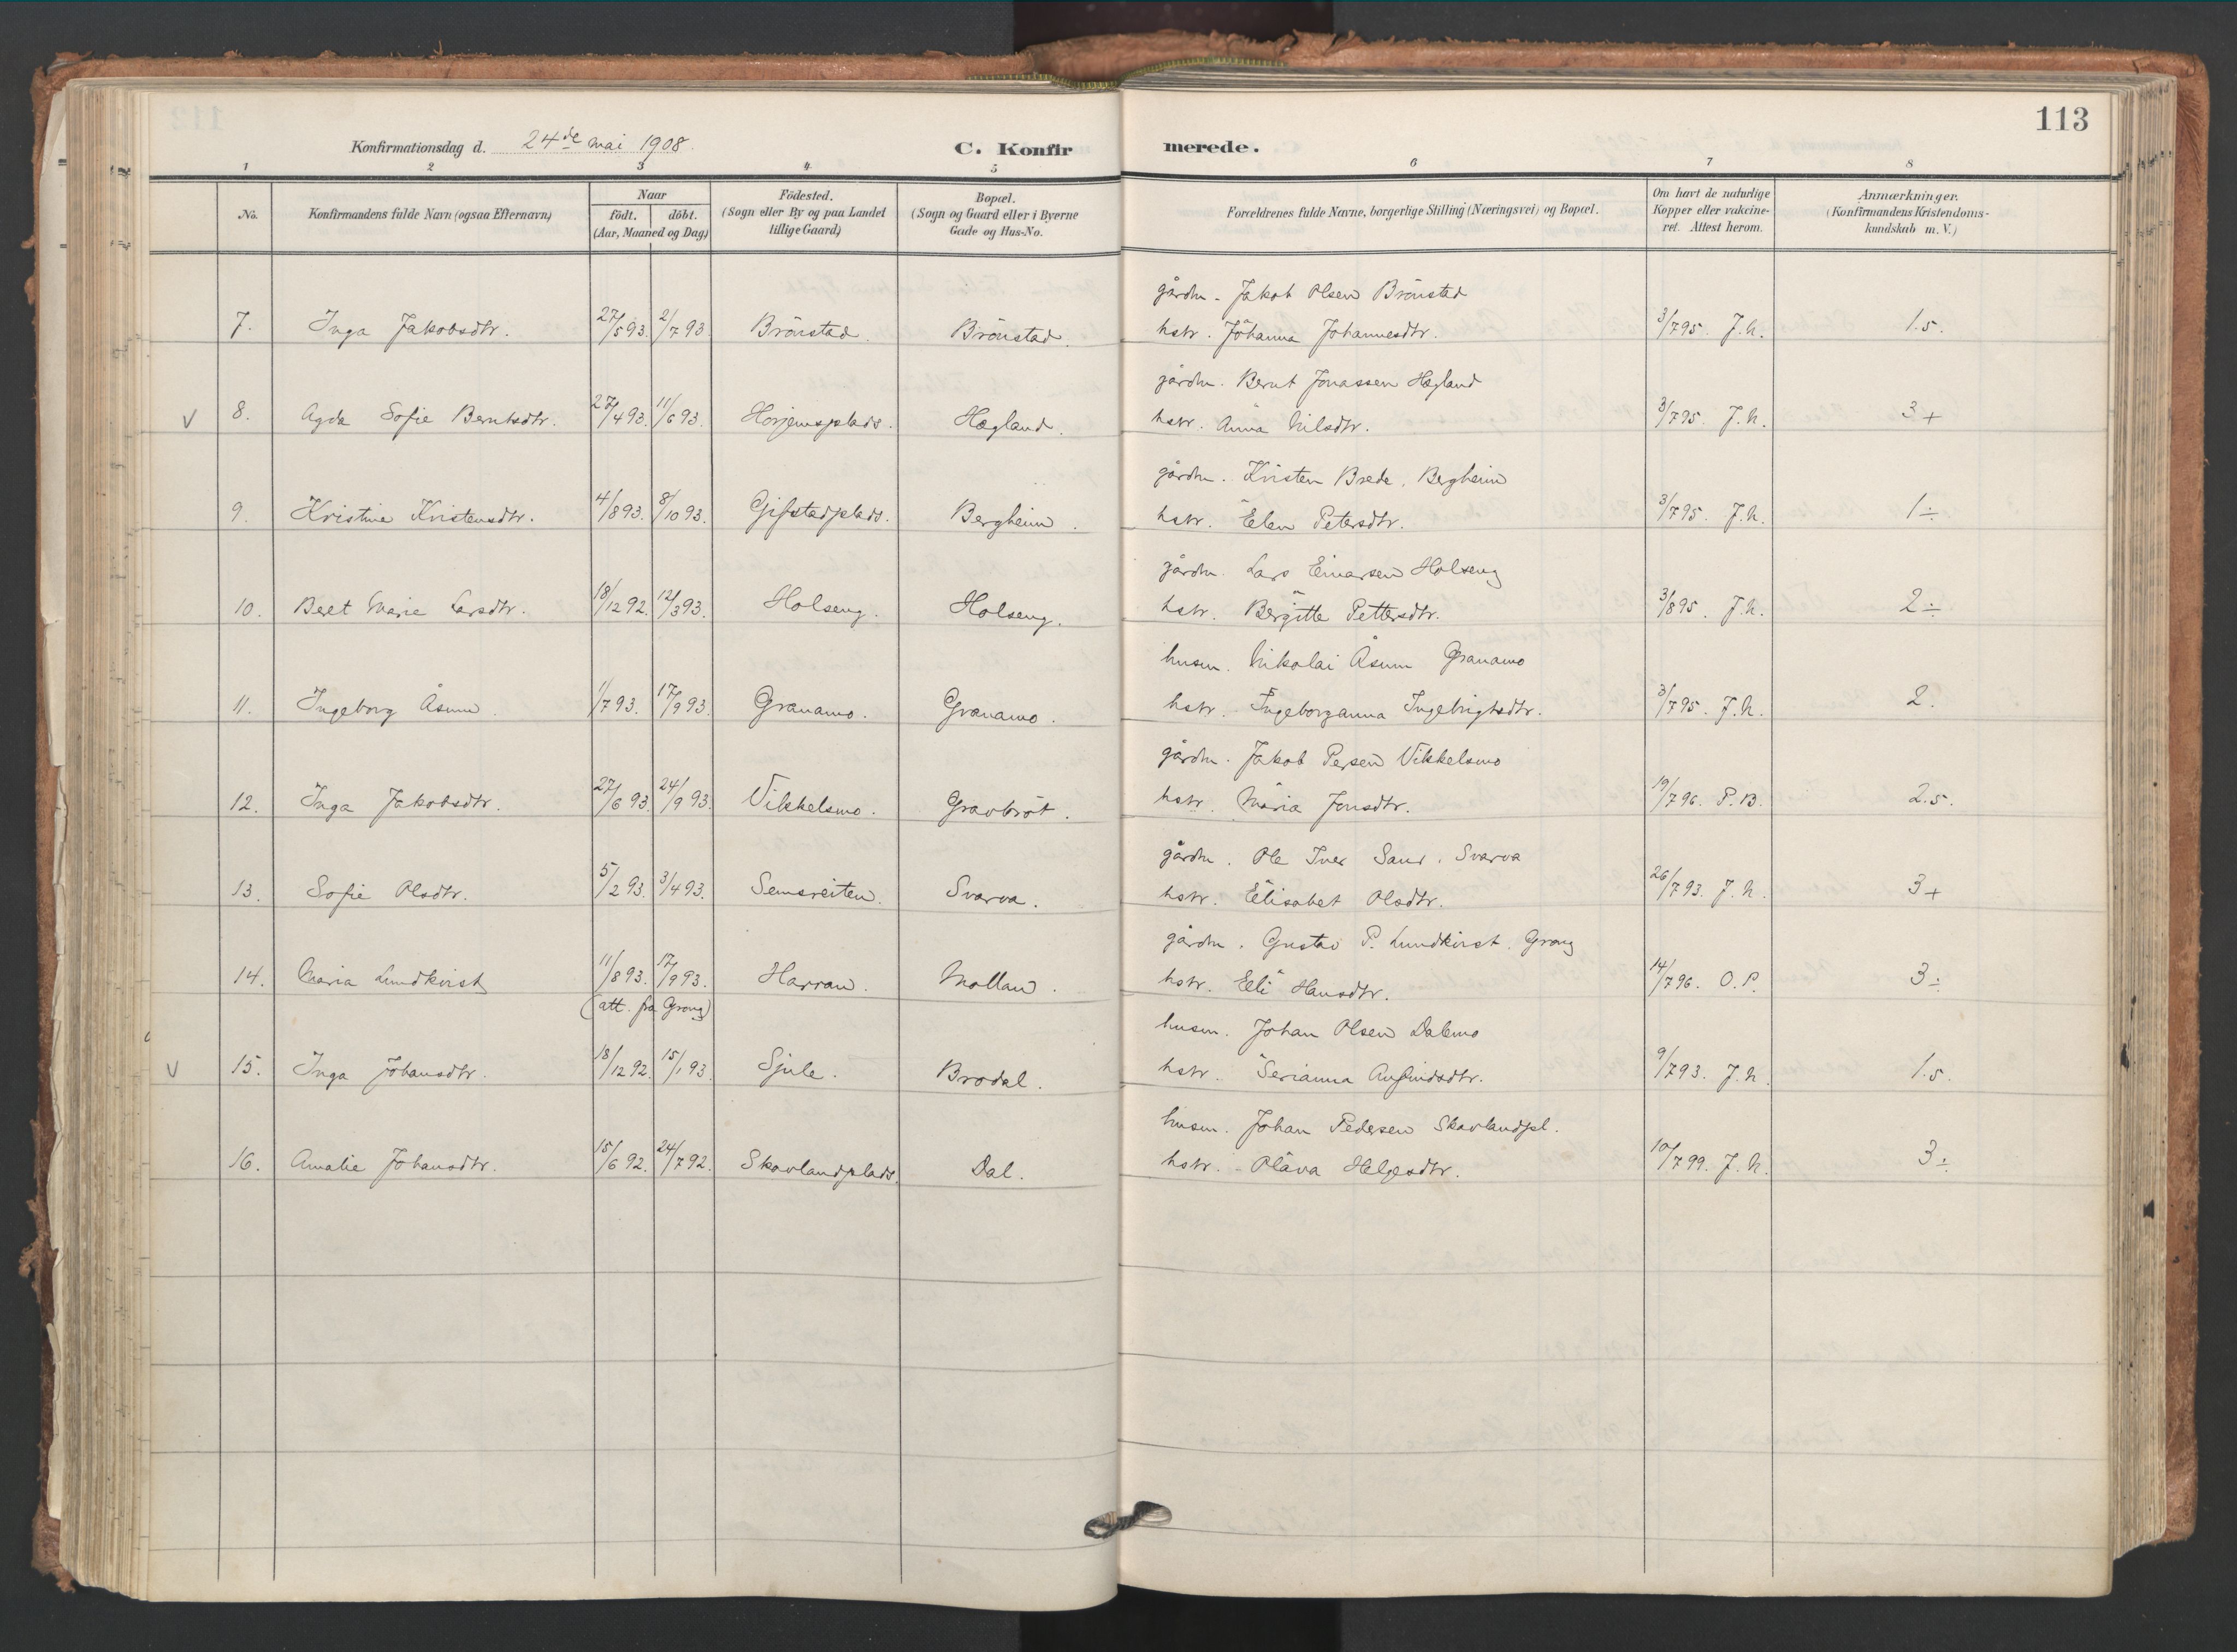 113
Konfirmationsdag d. 24de mai 1908.
C. Konfirmerede.
1 2 3 4 5 6 7 8
No.
Konfirmandens fulde Navn (ogsaa Efternavn)
Naar
födt. döbt.
(Aar, Maaned og Dag)
Födested.
(Sogn eller By og paa Landet
tillige Gaard)
Bopæl.
(Sogn og Gaard eller i Byerne
Gade og Hus-No.
Forældrenes fulde Navne, borgerlige Stilling (Næringsvei) og Bopæl.
Om havt de naturlige
Kopper eller vakcine-
ret. Attest herom.
Anmærkninger.
(Konfirmandens Kristendoms-
kundskab m. V.)
gårdm. Jakob Olsen Brönstad
7. Inga Jakobsdtr. 27/5 93. 2/7 93 Brönstad. Brönstad. hstr. Johanna Johannesdtr. 3/7 95. J.N. 1.5.
gårdm. Bernt Jonassen Hægland
v 8. Agda Sofie Berntsdtr. 27/4 93. 11/6 93. Horjemsplads. Hægland. hstr. Anna Nilsdtr. 3/7 95. J.N. 3+
gårdm. Kristen Brede, Bergheim
9. Kristine Kristensdtr. 4/8 93. 8/10 93. Gifstadplads. Bergheim. hstr. Elen Petersdtr. 3/7 95. J.N. 1÷
gårdm. Lars Einarsen Holseng
10. Beret Marie Larsdtr. 18/12 92. 12/3 93. Holseng. Holseng. hstr. Bergitte Pettersdtr. 3/8 95. J.N. 2÷
husm. Nikolai Åsum Granamo
11. Ingeborg Åsum. 1/7 93. 17/9 93. Granamo. Granamo. hstr. Ingeborganna Ingebrigtsdtr. 3/7 95. J.N. 2.
gårdm. Jakob Persen Vikkelsmo
12. Inga Jakobsdtr. 27/6 93. 24/9 93. Vikkelsmo. Gravbröt. hstr. Maria Jonsdtr. 19/7 96. P.B. 2.5.
gårdm. Ole Iver Sand, Svarva
13. Sofie Olsdtr. 5/2 93. 3/4 93. Semsreiten. Svarva. hstr. Elisabet Olsdtr. 26/7 93. J.N. 3+
gårdm. Gustav P. Lundkvist, Grong
14. Maria Lundkvist 11/8 93. 17/9 93. Harran. Mollan. hstr. Eli Hansdtr. 14/7 96. O.P. 3÷
(att. fra Grong)
husm. Johan Olsen Dalemo
v 15. Inga Johansdtr. 18/12 92. 15/1 93. Sjule. Brodal. hstr. Serianna Anfindsdtr. 9/7 93. J.N. 1.5.
husm. Johan Pedersen Skavlandpl.
16. Amalie Johansdtr. 15/6 92. 24/7 92. Skavlandplads. Dal. hstr. Olava Helgesdtr. 10/7 99. J.N. 3÷